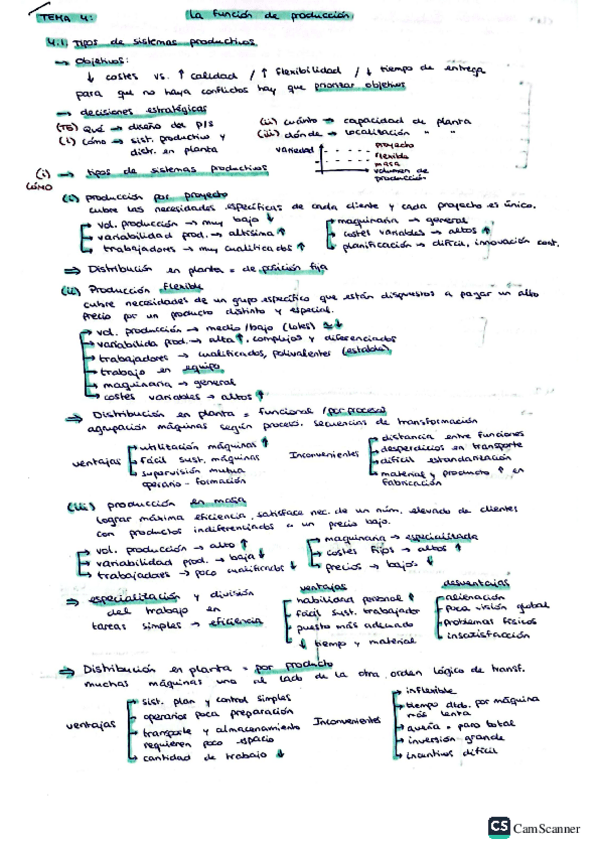 TEMA 4: La función de producción
4.1. Tipos de sistemas productivos
→ Objetivos:
↓ costes vs. ↑ calidad / ↑ flexibilidad / ↓ tiempo de entrega
para que no haya conflictos hay que priorizar objetivos
→ decisiones estratégicas
(T5) Qué → diseño del P/S (ii) cuánto → capacidad de planta
(i) cómo → sist. productivo y (iii) dónde → localización " "
distr. en planta
variedad
proyecto
flexible
masa
volumen de
producción
(i) → tipos de sistemas productivos
CÓMO
(i) producción por proyecto
cubre las necesidades específicas de cada cliente y cada proyecto es único.
→ vol. producción → muy bajo ↓ → maquinaria → general
→ variabilidad prod. → altísima ↑ → costes variables → altos ↑
→ trabajadores → muy cualificados ↑ → planificación → difícil, innovación cont.
⇒ Distribución en planta = de posición fija
(ii) Producción flexible
cubre necesidades de un grupo específico que están dispuestos a pagar un alto
precio por un producto distinto y especial.
→ vol. producción → medio/bajo (lotes)
→ variabilida prod. → alta ↑, complejos y diferenciados
→ trabajadores → cualificados, polivalentes (estable)
→ trabajo en equipo
→ maquinaria → general
→ costes variables → altos ↑
⇒ Distribución en planta = funcional / por proceso
agrupación máquinas según proceso. secuencias de transformación
ventajas
→ utilización máquinas ↑
→ fácil sust. máquinas
→ supervisión mutua
operario - formación
Inconvenientes
→ distancia entre funciones
→ desperdicios en transporte
→ difícil estandarización
→ material y producto ↑ en
fabricación
(iii) producción en masa
lograr máxima eficiencia, satisface nec. de un núm. elevado de clientes
con productos indiferenciados a un precio bajo.
→ vol. producción → alto ↑ → maquinaria → especializada
→ variabilidad prod. → baja ↓ → costes fijos → altos ↑
→ trabajadores → poco cualificados ↓ → precios → bajos ↓
⇒ especialización y división
del trabajo en
tareas simples → eficiencia
ventajas
habilidad personal ↑
fácil sust. trabajador
puesto más adecuado
↓ tiempo y material
desventajas
alienación
poca visión global
problemas físicos
insatisfacción
⇒ Distribución en planta = por producto
muchas máquinas una al lado de la otra, orden lógico de transf.
ventajas
→ sist. plan y control simples
→ operarios poca preparación
→ transporte y almacenamiento
requieren poco espacio
→ cantidad de trabajo ↓
Inconvenientes
→ inflexible
→ tiempo dtdo. por máquina
más lenta
→ avería = paro total
→ inversión grande
→ incentivos difícil
CS CamScanner